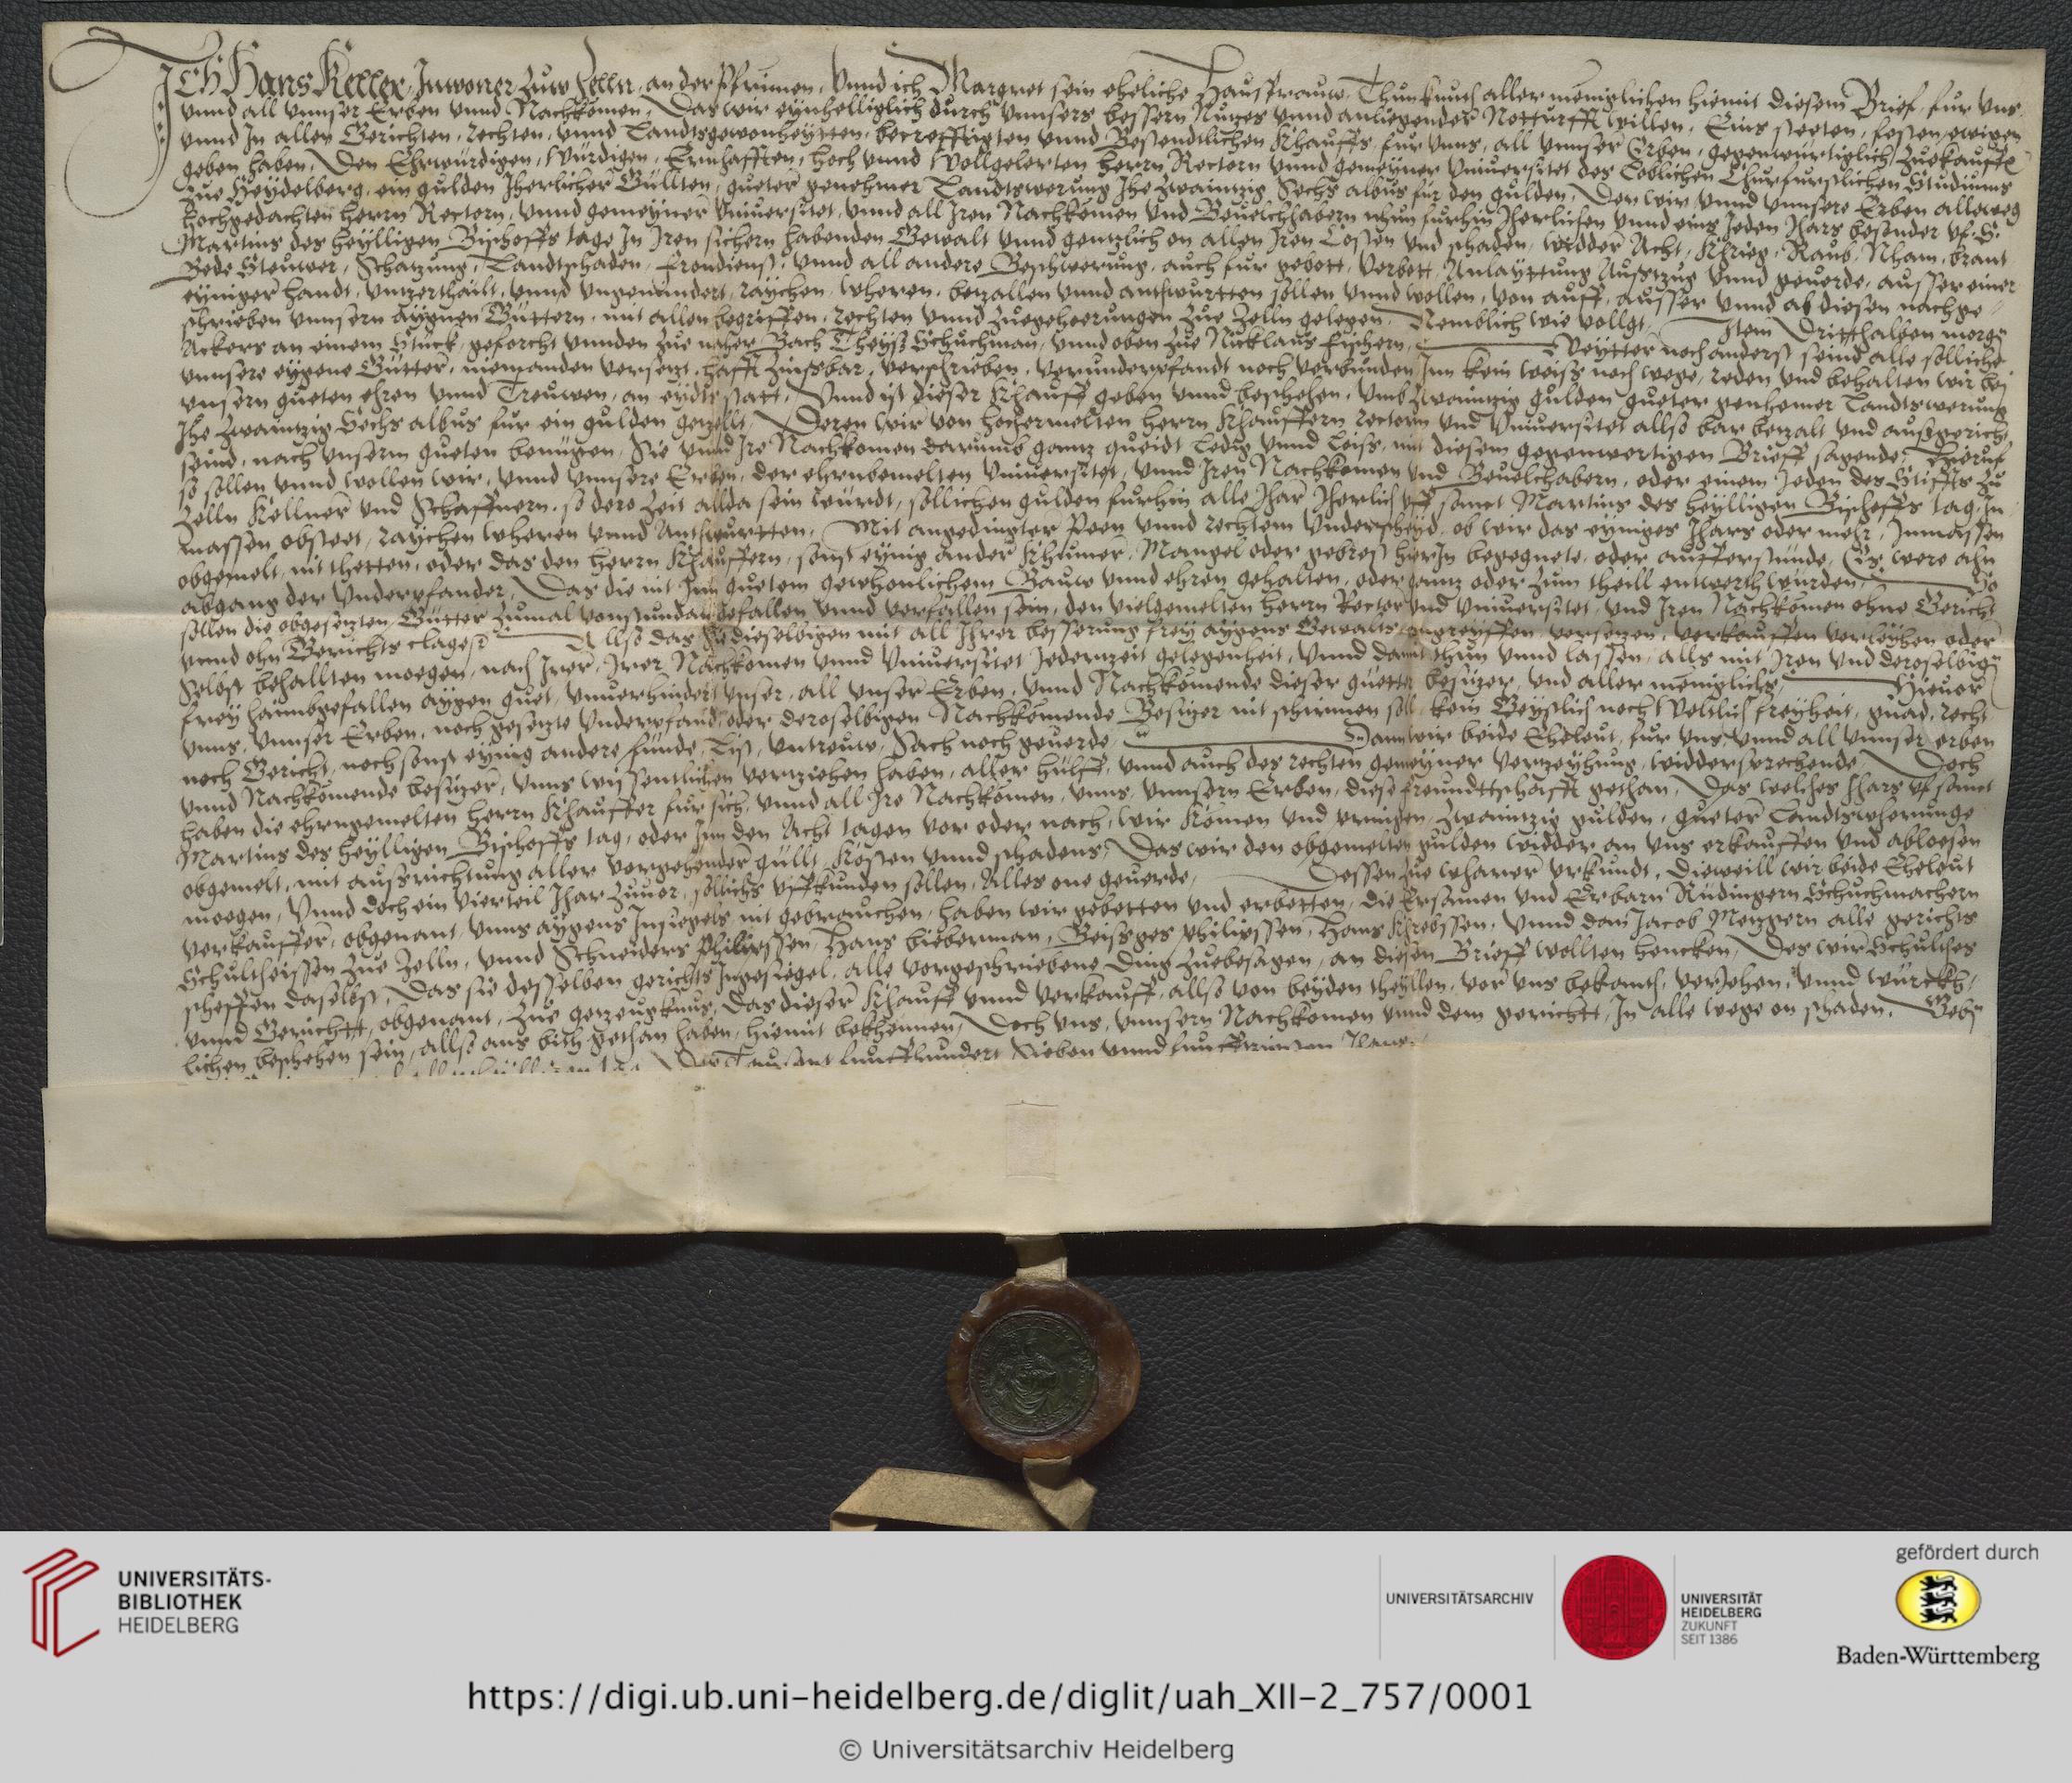 Ich Hans Keller, Inwoner zuw Zelln, an der Pfrimen, Vnnd ich Margret sein eheliche Hausfrauw, Thun kundt aller meniglichen hiemit diesem Brief, fur vns
vnnd all vnnser Erben vnnd Nachkomen, Das wir eynhelliglich durch vnnsers bessern Nuzes vnnd anliegender Notturfft willen, Eins steeten, festen, ewigen
vnnd In allen Gerichten, rechten, vnnd Landtsgewonheytten, becrefftigten vnnd Bestendtlichen Khauffs, fur vnns, all vnnser Erben, gegenwürtiglich zuekauffe
geben haben, Den Ehrwürdigen, Würdigen, Ernhafften, hoch vnnd Wollgelerten herrn Rectorn vnnd gemeyner Vniuersitet des Loblichen Churfurstlichen Studiums
zue Heydelberg, ein gulden Iherlicher Güllten, gueter genehmer Landtswerung Ihe zwaintzig Sechs albus für den gulden, Den wir vnnd vnnsere Erben alleweg
hochgedachten herrn Rectorn, vnnd gemeyner Vniuersitet, vnnd all Iren Nachkomen vnd Beuelchhabern nhun furhin Iherlichen vnnd eins Jeden Ihars besonder vf S.
Martins des heylligen Bischoffs tage In Iren sichern habenden Gewalt vnnd gentzlich on allen Iren Costen vnd schaden, widder Acht, Khrieg, Raub, Nham, brant
Bede Steuwer, Schatzung, Landtschaden, frondienst, vnnd all andere Beschwerung, auch fur gebott, Verbott, Anlayttung Ausszüg vnnd geuerde, ausser einer
eyniger handt, vnzertheilt, vnnd vngemindert, raychen, wheren, betzallen vnnd anthwurtten sollen vnnd wollen, von auff, ausser vnnd ab diesen nachge-
schrieben vnnsern aygnen Güttern, mit allen begriffen, rechten vnnd zuegehoerungen zue Zelln gelegen, Nemblich wie vollgt, Item Dritthalben morgen
Ackers an einem Stück, geforcht vnnden zue naher Bach Theyß Schuchman, vnnd oben zue Nicklaus fischern, Weytter noch anderst seind alle solliche
vnnsere eygene Gütter, niemanden versetzt, hafft zinsbar, verschrieben, verunderpfandt noch verbunden Inn kein weiss noch wege, reden vnd behalten wir bei
vnsern gueten ehren vnnd Treuwen, an eydts statt, Vnnd ist dieser Khauff geben vnnd beschehen, vmb zwaintzig gulden gueter genhemer Landtswerung
Ihe zwaintzig Sechs albus fur ein gulden getzellt, Deren wir von hochermelten herrn Khauffern rectorn vnd Vniuersitet allso bar betzalt vnd außgericht,
seind, nach vnserm gueten benügen, Sie vnnd Ire Nachkomen darumb gantz queidt Ledig vnnd Loiss, mit diesem gegenwertigen Brieff sagende, Hieruf
so sollen vnnd wollen wir, vnnd vnnsere Erben, der ehrnbemelten Vniuersitet, vnnd Iren Nachkomen vnd Beuelchabern, oder einem Jeden des Stiffts zu
Zelln Kellner vnd Schaffnern, so dere zeit allda sein würdt, sollichen gulden furhin alle Ihar Iherlich vff sannt Martins des heylligen Bischoffs tag, In
massen obsteet, raychen wheren vnnd Anthwurtten. Mit angedingter Peen vnnd rechtem Vnderscheyd, ob wir das eyniges Ihars oder mehr, Inmassen
obgemelt, nit thetten, oder das den herrn Khauffern, sonst eynig ander Khumer, Mangel oder gebrest hierIn begegnete, oder aufferstünde, Es were ahn
abgang der Vnderpfander, Das die nit Inn guetem gewhonlichem Bauw vnnd ehren gehalten, oder gantz oder zum theill entwerth würden, So
sollen die obgesetzten Gütter zumal vonstundan gefallen vnnd verfallen sein, den vielgemelten herrn Rector vnd Vniuersitet, vnd Iren Nachkomen ohne Gericht
vnnd ohn Gerichts clagen, Allso das sie dieselbigen mit all Ihrer besserung frey aygens Gewalts angreyffen, versetzen, verkauffen verleyhen oder
Selbst behallten moegen, nach Irer, Irer Nachkomen vnnd Vniuersitet Jederntzeit gelegenheit, Vnnd damit thun vnnd lassen, alls mit Iren vnd deroselbigen
frey haimbgefallen aygen guet, vnuerhindert vnser, all vnser Erben, vnnd Nachkomende dieser guetter besitzer, vnd aller meniglichs, Hieuor
vnns, Vnnser Erben, noch gesetzte Vnderpfand, oder deroselbigen Nachkomende Besitzer nit schirmen soll, kein Geystlich noch Weltlich freyheit, gnad, recht
noch Gericht, noch sonst eynig andere fünde, List, vntreuw, Sach noch geuerde, Dann wir beide Eheleut, fur vns, vnnd all vnnser erben
vnnd Nachkomende besitzer, vnns wissentlichen vertziehen haben, aller hülff, vnnd auch des rechten gemeyner vertzeyhung, widdersprechende, Doch
haben die ehrngemelten herrn Khauffer fur sich, vnnd all Ire Nachkomen, vnns, vnnsern Erben, diese freundtschafft gethan, Das welches Ihars vf sannt
Martins des heylligen Bischoffs tag, oder Inn den Acht tagen vor oder nach, wir komen vnd bringen, zwaintzig gulden, gueter Landtswherunge
obgemelt, mit aussrichtung aller vergehender güllt, Kosten vnnd schadens, Das wir den obgemelten gulden widder an vns erkauffen vnd abloesen
moegen, Vnnd doch ein Vierteil Ihar zuuor, sollichs vffkunden sollen, Alles one geuerde, Dessen zue wharer vrkundt, Dieweill wir beide Eheleut
verkauffer, obgenant, vnns aygens Insiegels nit gebrauchen, haben wir gebetten vnd erbetten, die Ersamen vnd Erbarn Rüdingern Schuchmachern
Schultheissen zue Zelln, vnnd Schneiders Philipssen, Hans bieberman, Philipssen, Hans Khrebssen, vnnd dan Jacob Metzgern alle gerichts
scheffen daselbst, Das sie desselben gerichts Ingesiegel, alle vorgeschriebene ding zuebesagen, an diesen Brieff wollten hencken, Des wir Schultheis
vnnd Gerichtt, obgenant, zue getzeugknus, das dieser Khauff vnnd verkauff, allso von beyden theyllen, vor vns bekanth, versehen, vnnd würckh-
lichen beschehen sein, allso auf bith gethan haben, hiemit bekhennen, Doch vns, vnnsern Nachkomen vnnd dem gerichtt, In alle wege on schaden, Geben
Tausent funffhundert Sieben vnnd funfftzigsten Ihars
UNIVERSITÄTS-
BIBLIOTHEK
HEIDELBERG
UNIVERSITÄTSARCHIV
UNIVERSITÄT
HEIDELBERG
ZUKUNFT
SEIT 1386
gefördert durch
Baden-Württemberg
https://digi.ub.uni-heidelberg.de/diglit/uah_XII-2_757/0001
© Universitätsarchiv Heidelberg